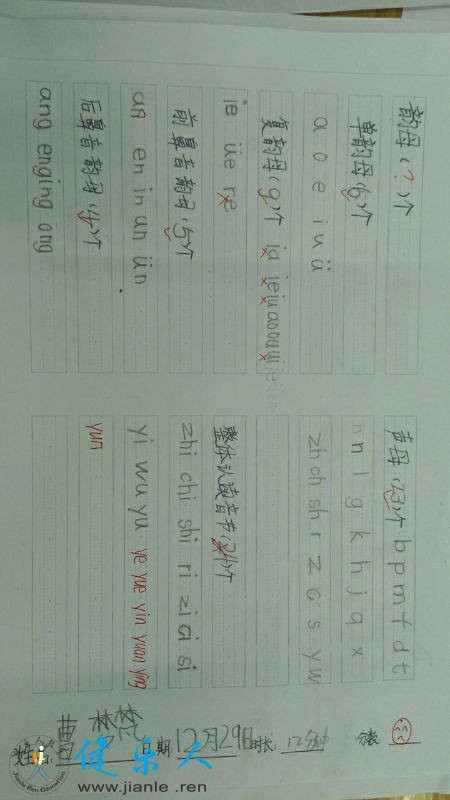 韵母(?)个
单韵母(6)个
a o e i u ü
复韵母(9)个 ia ie iu ao ou ui
ie üe re
前鼻音韵母(5)个
an en in un ün
后鼻音韵母(4)个
ang eng ing ong
声母(23)个 b p m f d t
n l g k h j q x
zh ch sh r z c s y w
整体认读音节(24)个
zhi chi shi ri zi ci si
yi wu yu ye yue yin yuan ying
yun
姓名: 曹 日期: 12月29日 时长: 12分钟 分数:
健乐人
www.jianle.ren